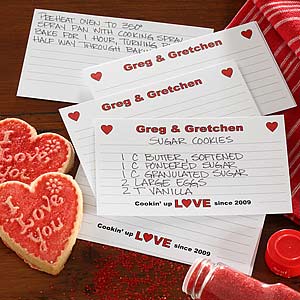 PREHEAT OVEN TO 350°
SPRAY PAN WITH COOKING SPRAY
BAKE FOR 1 HOUR, TURNING P
HALF WAY THROUGH BAK
Greg & Gretchen
Greg & Gretchen
Greg & Gretchen
SUGAR COOKIES
1 C BUTTER, SOFTENED
1 C POWDERED SUGAR
1 C GRANULATED SUGAR
2 LARGE EGGS
2 T VANILLA
Cookin' up LOVE since 2009
Cookin' up LOVE since 2009
I Love You
I Love You